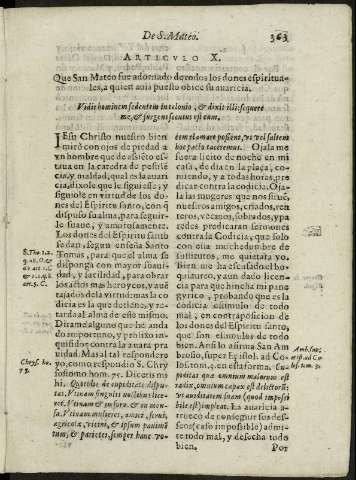 De S. Mateo. 363
ARTICVLO X.
Que San Mateo fue adornado de todos los dones espiritua-
les, a quien auia puesto obice su auaricia.
Vidit hominem sedentem in telonio, & dixit illi: sequere
me, & surgens secutus est eum.
IEsu Christo nuestro bien
miró con ojos de piedad a
vn hombre que de assiẽto es-
taua en la catedra de pestilē
cia, y maldad, qual es la aua
ricia, dixole que le siguiesse, y
siguiole en virtud de los do-
nes del Espiritu santo, con q̃
dispuso su alma, para seguir-
le suaue, y amorosamente.
Los dones del Espiritu santo
se dan, segun enseña Santo
Tomas, para que el alma se
disponga con mayor suaui-
dad, y facilidad, para obrar
los actos mas heroycos, y auē
tajados de la virtud: mas la co
dicia es la que detiene, y re-
tarda al alma de este mismo.
Dirame alguno que he anda
do importuno, y prolixo in-
quisidor contra la auara pra
uidad. Mas al tal responderé
yo, como respondio S. Chry
sostomo hom. 75. Diceris mi
hi. Quotidie de cupiditate dispu-
tas. Vtinam singulis noctibus lice-
ret. Vtinam & in foro, & in men-
sa. Vtinam mulieres, amici, serui,
agricolæ, vicini, & ipsum pauimē
tum, & parietes, semper hanc vo-
S. Tho. 1. 2.
Chrys. ho.
75.
cem clamare possent, vt vel saltem
hoc pacto taceremus. Ojala me
fuera licito de noche en mi
casa, de dia en la plaça, co-
miendo, y a todas horas, pre
dicar contra la codicia. Oja-
la las mugeres que nos siruē,
nuestros amigos, criados, ren
teros, vezinos, suelos, y pa
redes predicaran sermones
contra la Codicia, que solo
con esta muchedumbre de
[...], me quietara yo.
Bien me ha escusado el bo-
quiaurco, y aun dado licen
cia para que hincha mi pane
gyrico, probando que es la
codicia estimulo de todo
mal, en contraposicion de
los dones del Espiritu santo,
que son estimulo de todo
bien. Assi lo afirma San Am
brosio, super Epist. ad Co-
los. tom. 3. en esta forma. Cu
piditas que omnium malorum est
radix, omnium capax est delictorū:
vt auditatem suam (quod impossi
bile est) impleat. La auaricia a
trueco de conseguir sus des-
seos (caso impossible) admi-
te todo mal, y desecha todo
bien.
Amb. sup.
Por